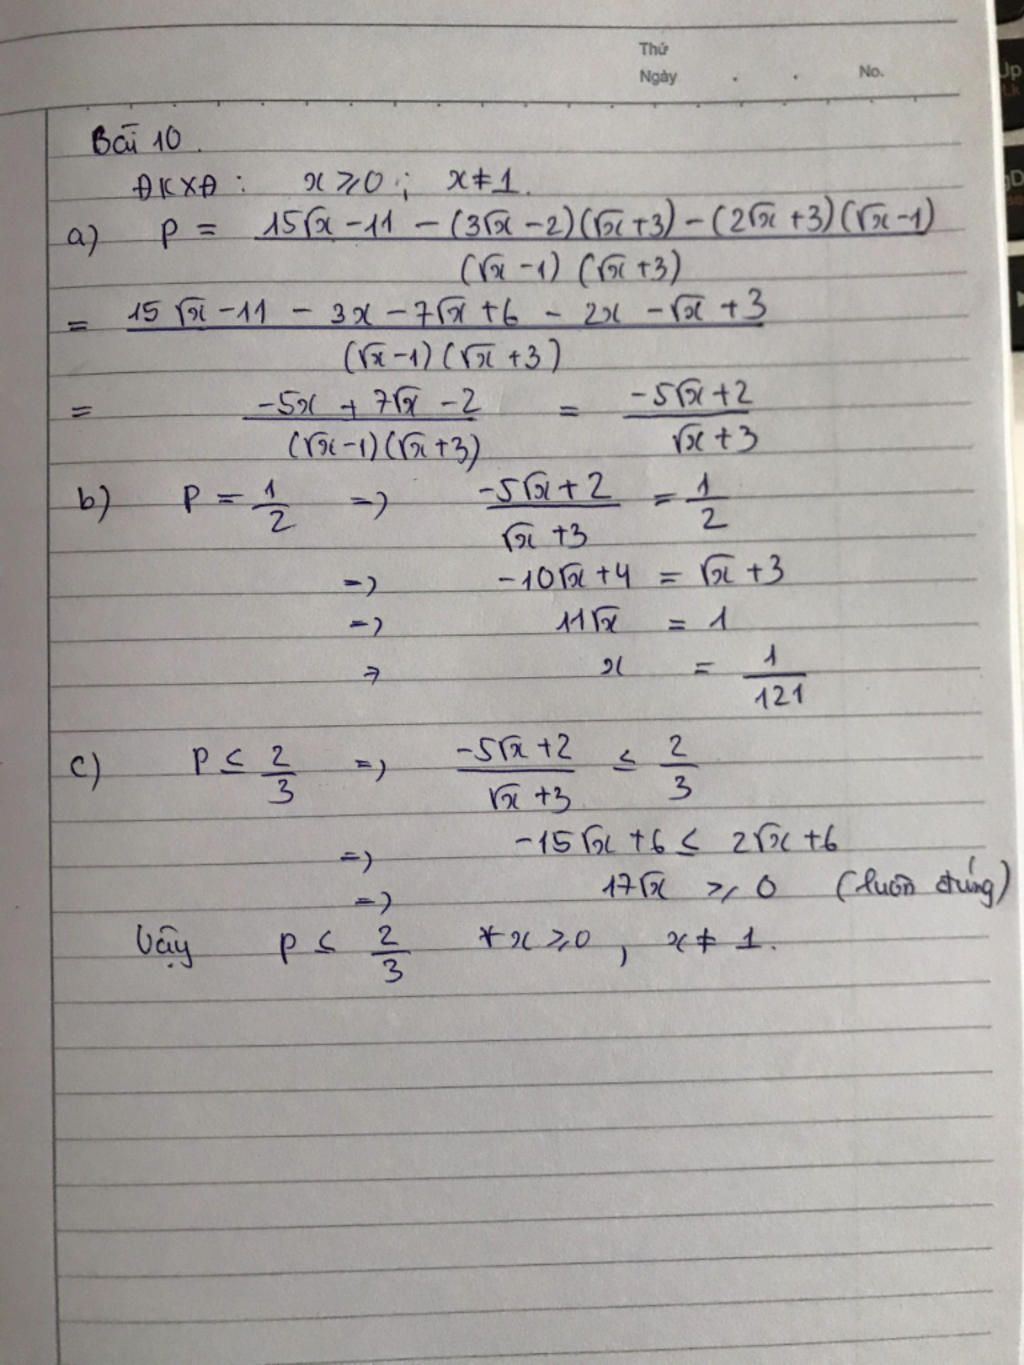 Thứ
Ngày . . No.
Bài 10.
ĐKXĐ: x ≥ 0; x ≠ 1.
a) P = (15√x - 11 - (3√x - 2)(√x + 3) - (2√x + 3)(√x - 1)) / ((√x - 1)(√x + 3))
= (15√x - 11 - 3x - 7√x + 6 - 2x - √x + 3) / ((√x - 1)(√x + 3))
= (-5x + 7√x - 2) / ((√x - 1)(√x + 3)) = (-5√x + 2) / (√x + 3)
b) P = 1/2 => (-5√x + 2) / (√x + 3) = 1/2
=> -10√x + 4 = √x + 3
=> 11√x = 1
=> x = 1/121
c) P ≤ 2/3 => (-5√x + 2) / (√x + 3) ≤ 2/3
=> -15√x + 6 ≤ 2√x + 6
=> 17√x ≥ 0 (luôn đúng)
Vậy P ≤ 2/3 ∀x ≥ 0, x ≠ 1.